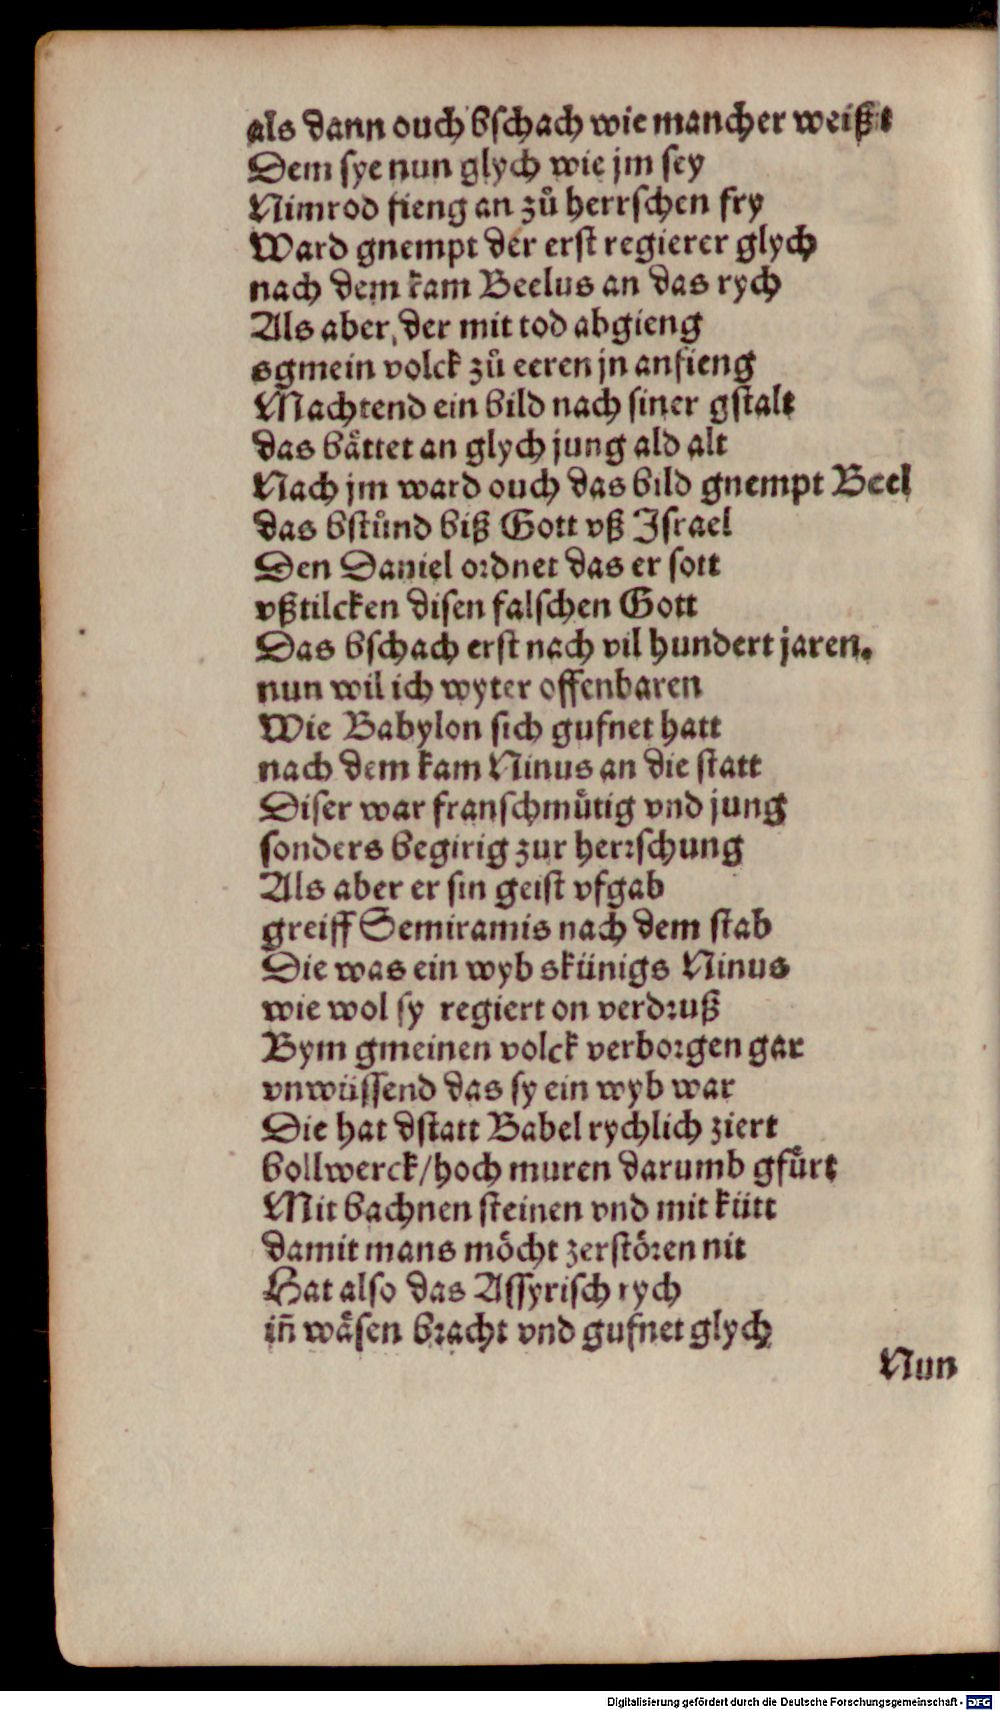 als dann ouch bschach wie mancher weißt
Dem sye nun glych wie jm sey
Nimrod fieng an zů herrschen fry
Ward gnempt der erst regierer glych
nach dem kam Beelus an das rych
Als aber, der mit tod abgieng
sgmein volck zů eeren jn anfieng
Machtend ein bild nach siner gstalt
das bättet an glych jung ald alt
Nach jm ward ouch das bild gnempt Beel
das bstůnd biß Gott vß Israel
Den Daniel ordnet das er sott
vßtilcken disen falschen Gott
Das bschach erst nach vil hundert jaren.
nun wil ich wyter offenbaren
Wie Babylon sich gufnet hatt
nach dem kam Ninus an die statt
Diser war franschmütig vnd jung
sonders begirig zur herrschung
Als aber er sin geist vfgab
greiff Semiramis nach dem stab
Die was ein wyb skünigs Ninus
wie wol sy regiert on verdruß
Bym gmeinen volck verborgen gar
vnwüssend das sy ein wyb war
Die hat dstatt Babel rychlich ziert
bollwerck/hoch muren darumb gfürt
Mit bachnen steinen vnd mit kütt
damit mans möcht zerstören nit
Hat also das Assyrisch rych
iñ wäsen bracht vnd gufnet glych
Nun
Digitalisierung gefördert durch die Deutsche Forschungsgemeinschaft - DFG